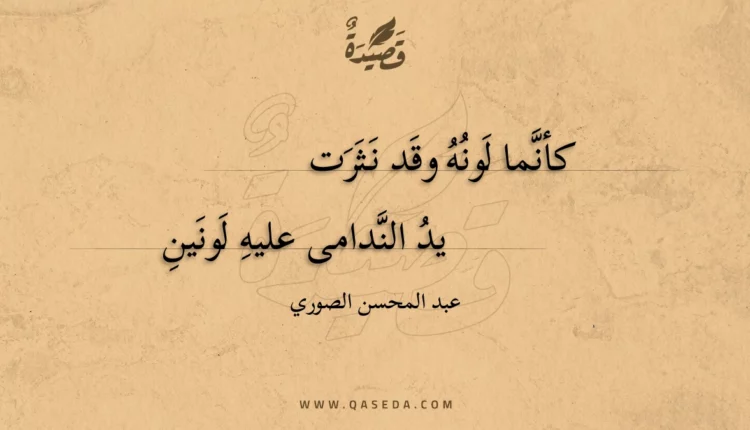 قَصِيْدَةٌ
كأنَّما لَونُهُ وقَد نَثَرَت
يدُ النَّدامى عليهِ لَونَينِ
عبد المحسن الصوري
WWW.QASEDA.COM